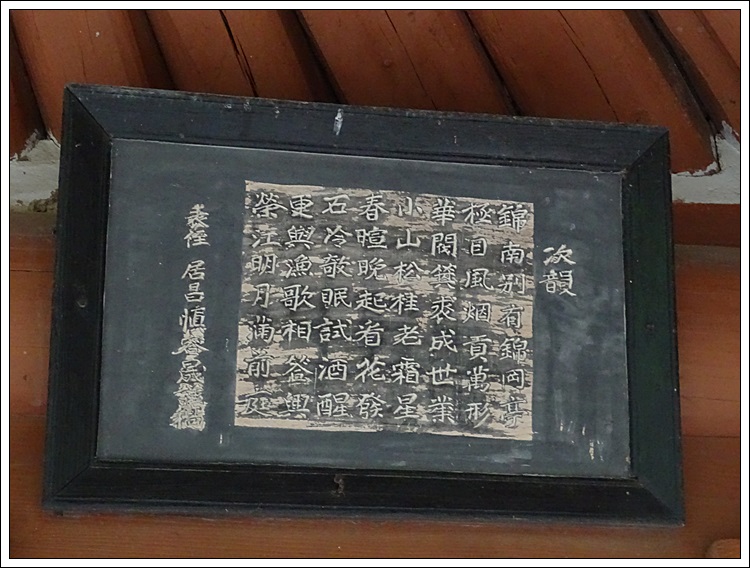 次韻
錦南別有錦岡亭
極目風烟貢萬形
華閥裘成世業
小山松桂老霜星
春暄晚起看花發
石冷敧眠試酒醒
更與漁歌相荅興
榮江明月滿前庭
表侄 居昌愼